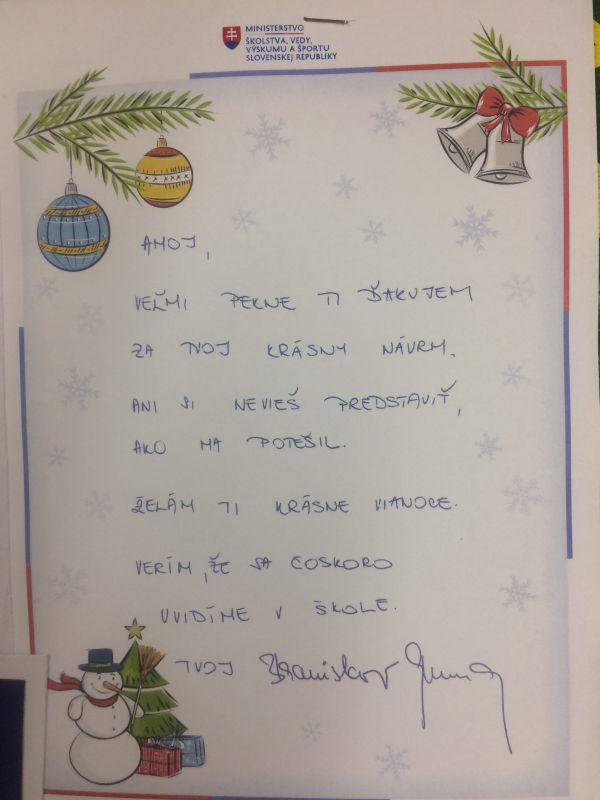 MINISTERSTVO
ŠKOLSTVA, VEDY,
VÝSKUMU A ŠPORTU
SLOVENSKEJ REPUBLIKY
AHOJ,
VEĽMI PEKNE TI ĎAKUJEM
ZA TVOJ KRÁSNY NÁVRH.
ANI SI NEVIEŠ PREDSTAVIŤ,
AKO MA POTEŠIL.
ŽELÁM TI KRÁSNE VIANOCE.
VERÍM, ŽE SA ČOSKORO
UVIDÍME V ŠKOLE.
TVOJ Branislav